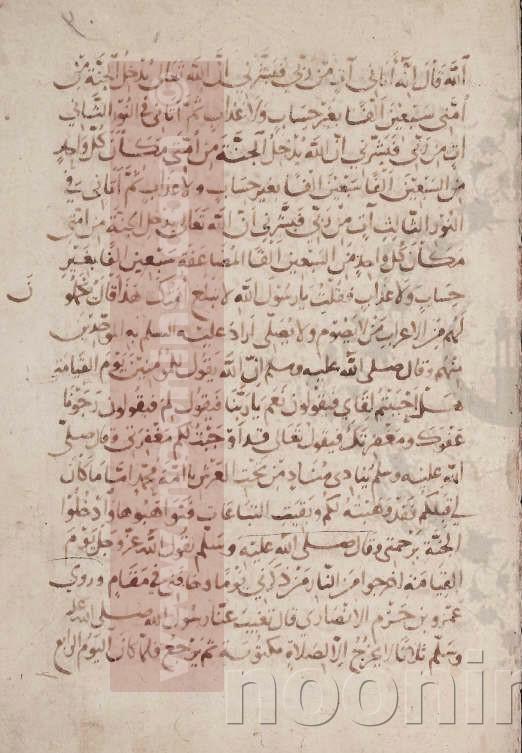 الله قال انه أتاني آت من ربي فبشرني ان الله تعالى يدخل الجنة من
امتي سبعين الفا بغير حساب ولا عذاب ثم اتاني في النور الثاني
آت من ربي فبشرني ان الله يدخل الجنة من امتي مكان كل واحد
من السبعين الفا سبعين الفا بغير حساب ولا عذاب ثم اتاني في
النور الثالث آت من ربي فبشرني ان الله تعالى يدخل الجنة من امتي
مكان كل واحد من السبعين الفا المضاعفة سبعين الفا بغير
حساب ولا عذاب فقلت يا رسول الله لا يبلغ امتك هذا قال
لكم من الاعراب من لا يصوم ولا يصلي اراد عليه السلم به الموحدين
منهم وقال صلى الله عليه وسلم ان الله يقول للمومنين يوم القيامة
هل احببتم لقاي فيقولون نعم يا ربنا فيقول لم فيقولون رجونا
عفوك ومغفرتك فيقول تعالى قد اوجبت لكم مغفرتي وقال صلى
الله عليه وسلم ينادي مناد من تحت العرش يا امة محمد اما ما كان
لي قبلكم فقد وهبته لكم وبقيت التباعات فتواهبوها وادخلوا
الجنة برحمتي وقال صلى الله عليه وسلم يقول الله عز وجل يوم
القيامة اخرجوا من النار من ذكرني يوما وخافني في مقام وروي
عمرو بن حزم الانصاري قال تغيب عنا رسول الله صلى الله عليه
وسلم ثلاثا لا يخرج الا لصلاة مكتوبة ثم يرجع فلما كان اليوم الرابع
noonin